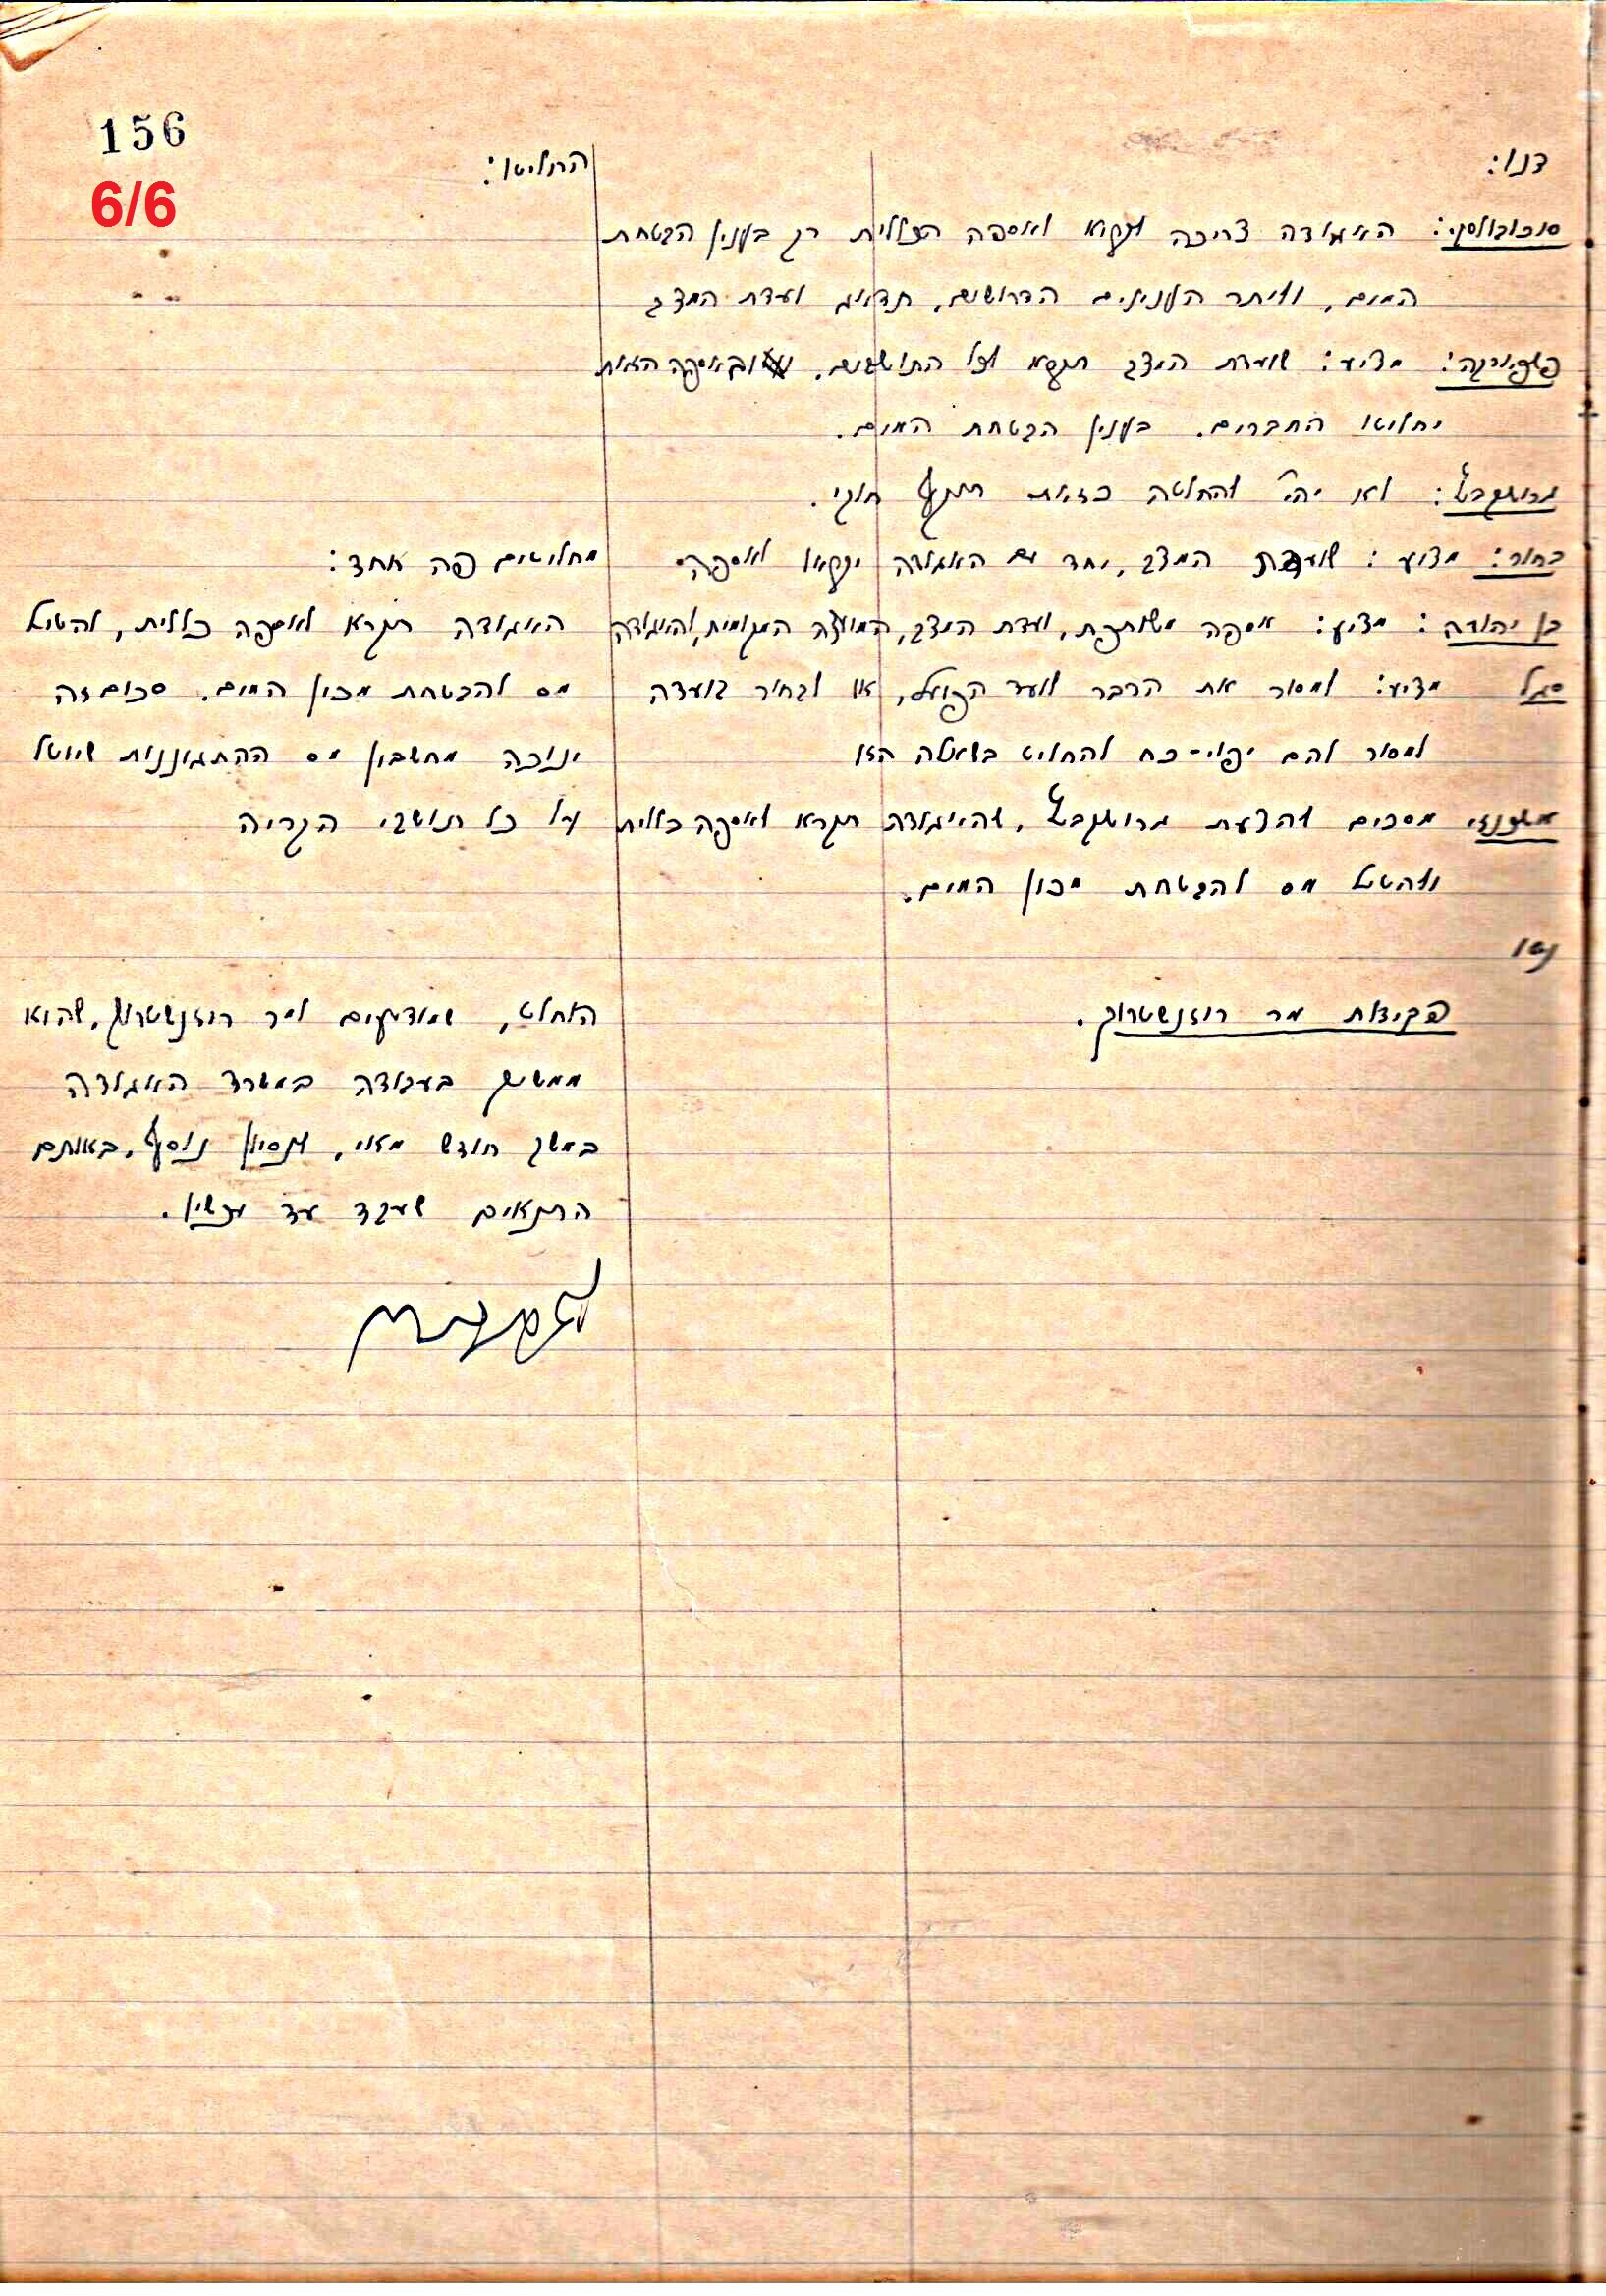 156
6/6
דנו:
סוכובולסקי: האגודה צריכה לקרוא לאספה הכללית רק בענין הבטחת
המים, וליתר הענינים הדרושים, תדאג ועדת המצב
מציע: שועדת המצב תקרא לכל התושבים. ובאספה הזאת
יחליטו החברים. בענין הבטחת המים.
מרושקבסקי: לא יהי' להחלטה כזאת תוקף חוקי.
בחור: מציע: שועדת המצב, יחד עם האגודה יקראו לאספה.
בן יהודה: מציע: אספה משותפת, ועדת המצב, המועצה המקומית, והאגודה
סגל מציע: למסור את הדבר לועד הפועל, או לבחור בועדה
למסור להם יפוי-כח להחליט בשאלה הזו
אשכנזי מסכים להצעת מרושקבסקי, שהאגודה תקרא לאספה כללית
ולהטיל מס להבטחת מכון המים.
נטו
הקיצבות מר רוזנשטרוך.
החליטו:
מחליטים פה אחד:
האגודה תקרא לאספה כללית, להטיל
מס להבטחת מכון המים. סכום זה
ינוכה מחשבון מס ההתגוננות שיוטל
על כל תושבי הקריה
הוחלט, שמודיעים למר רוזנשטרוך, שהוא
ממשיך בעבודה במשרד האגודה
במשך חודש מאי, לנסיון נוסף, באותם
התנאים שעבד עד עכשיו.